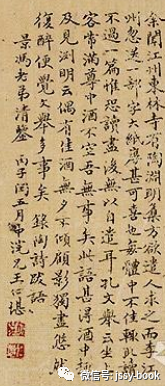 余聞江州東林寺有陶淵明集方欲遣人求之而李江
州忽送一部字大紙厚甚可喜也每體中不佳輒取讀
不過一篇惟恐讀盡後無以自遣耳孔文舉云坐上
客常滿尊中酒不空吾無事矣此語甚得酒中趣
及見淵明云偶有佳酒無夕不傾顧影獨盡悠然
復醉便覺文舉多事矣 錄陶詩跋語
景馮老弟清鑒 丙子閏五月 浣 兄王仁堪
微信号: jssy-book